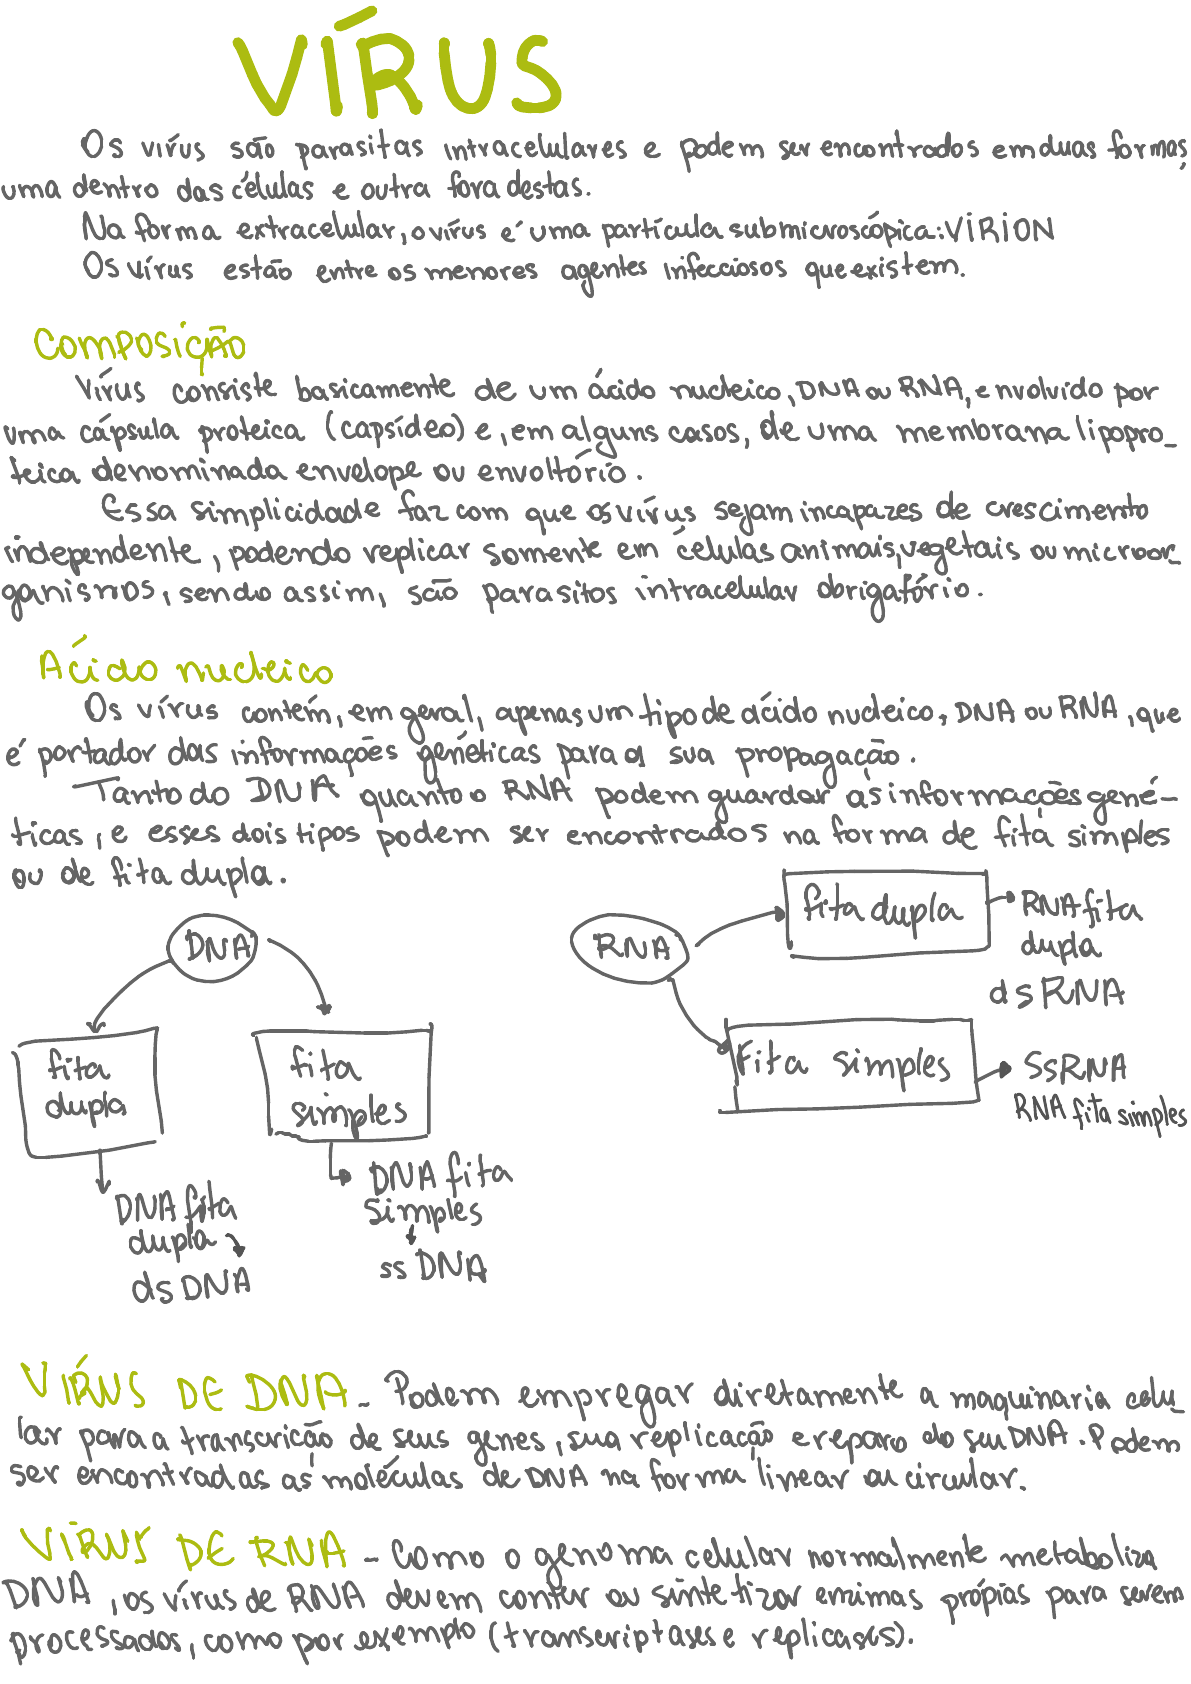 VÍRUS
Os vírus são parasitas intracelulares e podem ser encontrados em duas formas,
uma dentro das células e outra fora destas.
Na forma extracelular, o vírus é uma partícula submicroscópica: VIRION
Os vírus estão entre os menores agentes infecciosos que existem.
Composição
Vírus consiste basicamente de um ácido nucleico, DNA ou RNA, envolvido por
uma cápsula proteica (capsídeo) e, em alguns casos, de uma membrana lipopro_
teica denominada envelope ou envoltório.
Essa simplicidade faz com que os vírus sejam incapazes de crescimento
independente, podendo replicar somente em células animais, vegetais ou microor_
ganismos, sendo assim, são parasitos intracelular obrigatório.
Ácido nucleico
Os vírus contém, em geral, apenas um tipo de ácido nucleico, DNA ou RNA, que
é portador das informações genéticas para a sua propagação.
Tanto do DNA quanto o RNA podem guardar as informações gené-
ticas, e esses dois tipos podem ser encontrados na forma de fita simples
ou de fita dupla.
DNA
fita
dupla
fita
simples
DNA fita
dupla
ds DNA
DNA fita
simples
ss DNA
RNA
fita dupla
RNA fita
dupla
ds RNA
Fita simples
SsRNA
RNA fita simples
VÍRUS DE DNA - Podem empregar diretamente a maquinaria celu_
lar para a transcrição de seus genes, sua replicação e reparo do seu DNA. Podem
ser encontradas as moléculas de DNA na forma linear ou circular.
VÍRUS DE RNA - Como o genoma celular normalmente metaboliza
DNA, os vírus de RNA devem conter ou sintetizar enzimas própias para serem
processados, como por exemplo (transcriptases e replicases).